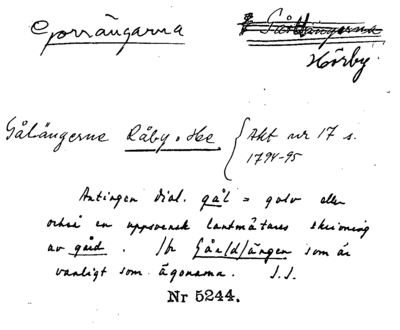 Gorrängarna
Hörby.
Gålängerne Råby o Hee { Akt nr 17 s.
1794-95
Antingen dial. gål = golv eller
också en uppsvensk lantmätares skrivning
av gård. Jfr Går/d/ängen som är
vanligt som ägonamn. S.S.
Nr 5244.